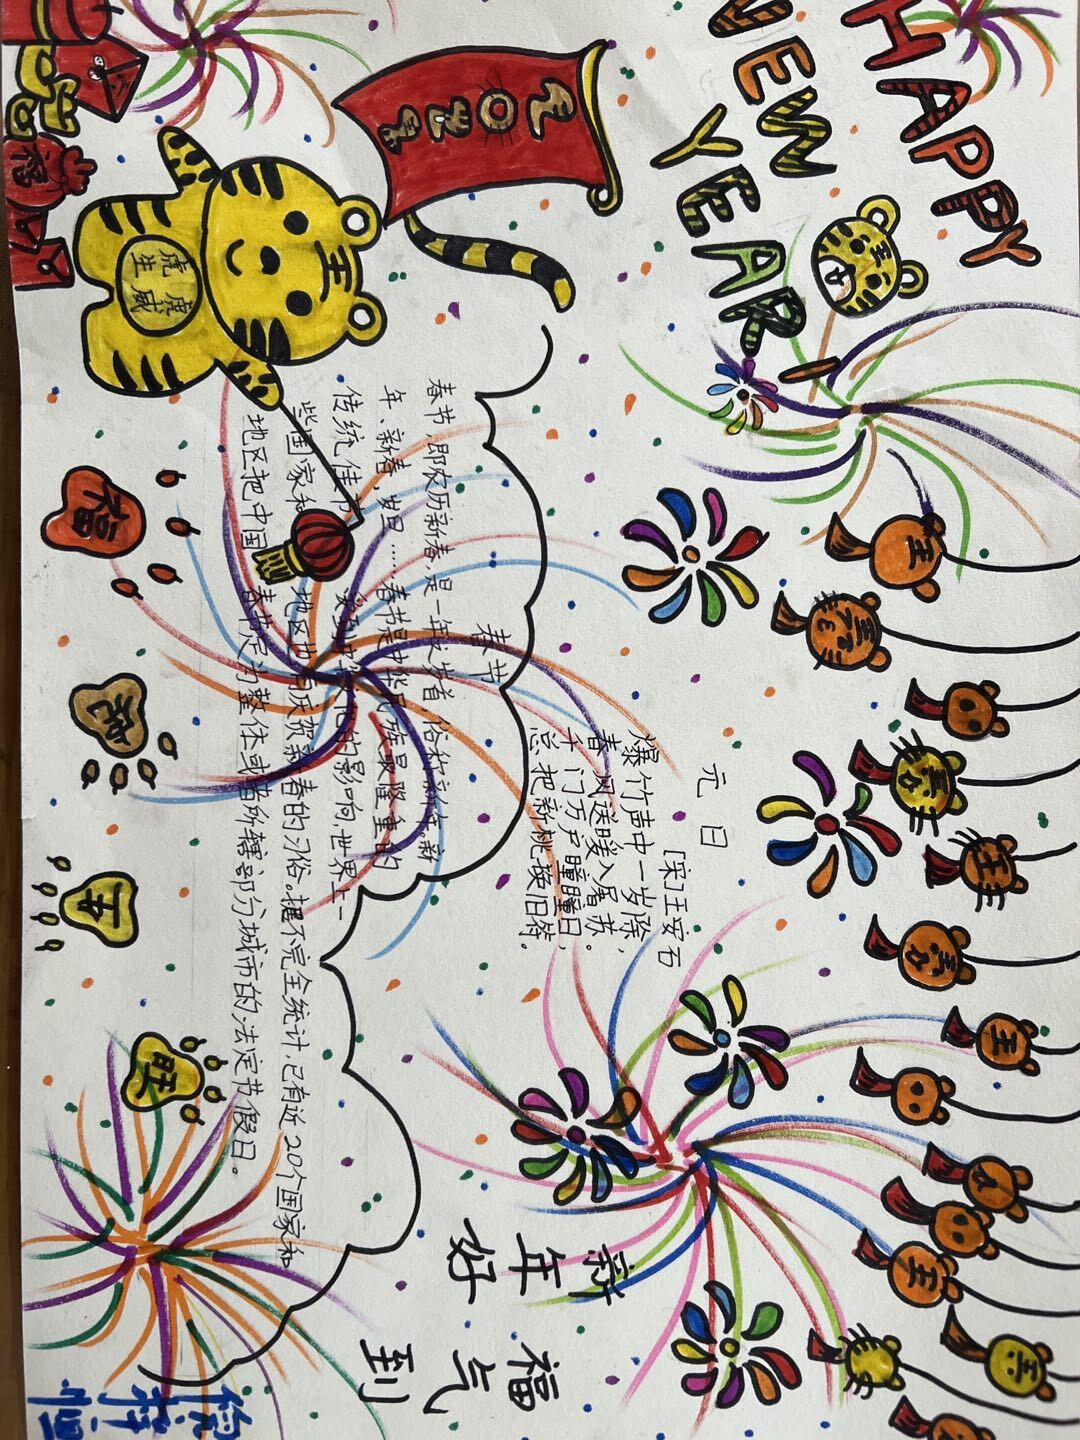 HAPPY
NEW
YEAR!
2022
虎虎
生威
福
元日
[宋]王安石
爆竹声中一岁除，
春风送暖入屠苏。
千门万户瞳瞳日，
总把新桃换旧符。
春节
春节，即农历新春，是一年之岁首，俗称新年。新
年、新春，岁旦……春节是中华民族最隆重的
传统佳节 受到中华文化的影响，世界上一
些国家和 地区也有庆贺新春的习俗。据不完全统计，已有近20个国家和
地区把中国 春节定为整体或者所辖部分城市的法定节假日。
新年好
福气到
福
旺